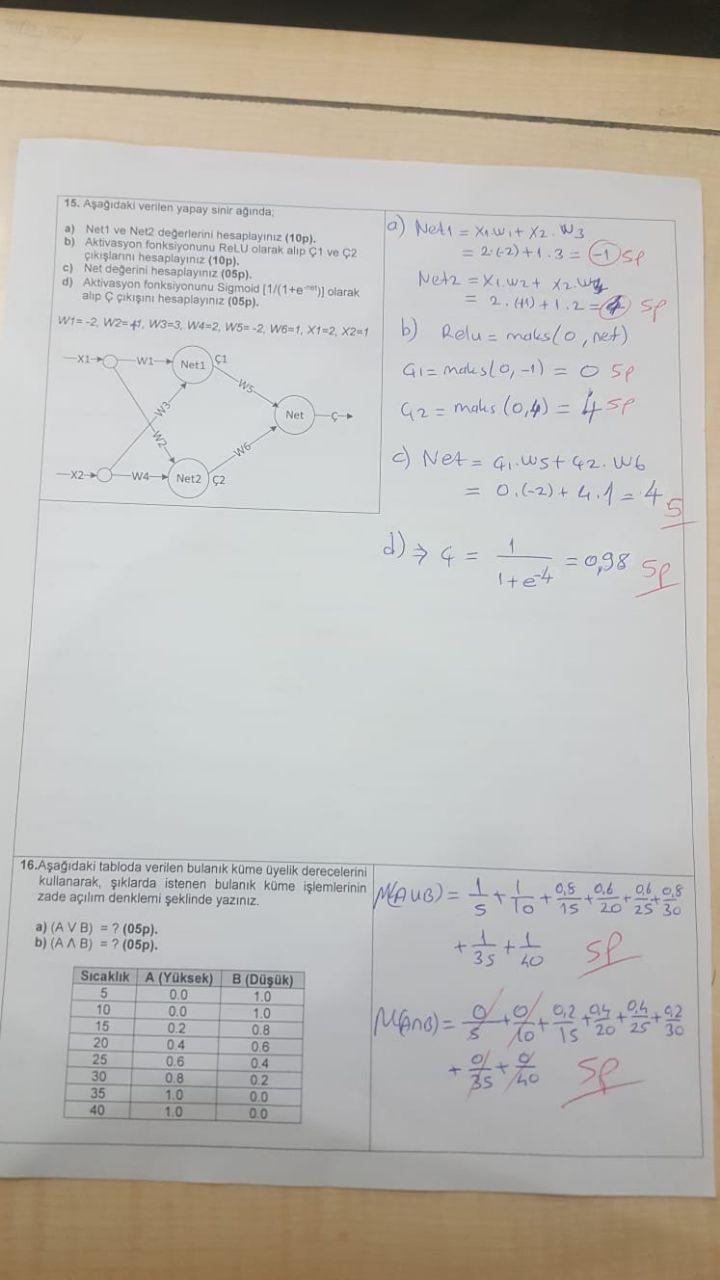 15. Aşağıdaki verilen yapay sinir ağında;
a) Net1 ve Net2 değerlerini hesaplayınız (10p).
b) Aktivasyon fonksiyonunu ReLU olarak alıp Ç1 ve Ç2
çıkışlarını hesaplayınız (10p).
c) Net değerini hesaplayınız (05p).
d) Aktivasyon fonksiyonunu Sigmoid [1/(1+e⁻ⁿᵉᵗ)] olarak
alıp Ç çıkışını hesaplayınız (05p).
W1= -2, W2=+1, W3=3, W4=2, W5= -2, W6=1, X1=2, X2=1
X1 W1 Net1 Ç1
W5
W3
Net Ç
W2
W6
X2 W4 Net2 Ç2
a) Net1 = X1.W1 + X2.W3
= 2.(-2)+1.3 = -1 5p
Net2 = X1.W2 + X2.W4
= 2.(+1)+1.2 = 4 5p
b) Relu = maks(0, net)
Ç1 = maks(0,-1) = 0 5p
Ç2 = maks(0,4) = 4 5p
c) Net = Ç1.W5 + Ç2.W6
= 0.(-2) + 4.1 = 4 5
d) ⇒ Ç = 1/(1+e⁻⁴) = 0,98 5p
16.Aşağıdaki tabloda verilen bulanık küme üyelik derecelerini
kullanarak, şıklarda istenen bulanık küme işlemlerinin
zade açılım denklemi şeklinde yazınız.
a) (A V B) = ? (05p).
b) (A Λ B) = ? (05p).
Sıcaklık A (Yüksek) B (Düşük)
5 0.0 1.0
10 0.0 1.0
15 0.2 0.8
20 0.4 0.6
25 0.6 0.4
30 0.8 0.2
35 1.0 0.0
40 1.0 0.0
M(AUB) = 1/5 + 1/10 + 0,8/15 + 0,6/20 + 0,6/25 + 0,8/30
+ 1/35 + 1/40 5p
M(A∩B) = 0/5 + 0/10 + 0,2/15 + 0,4/20 + 0,4/25 + 0,2/30
+ 0/35 + 0/40 5p